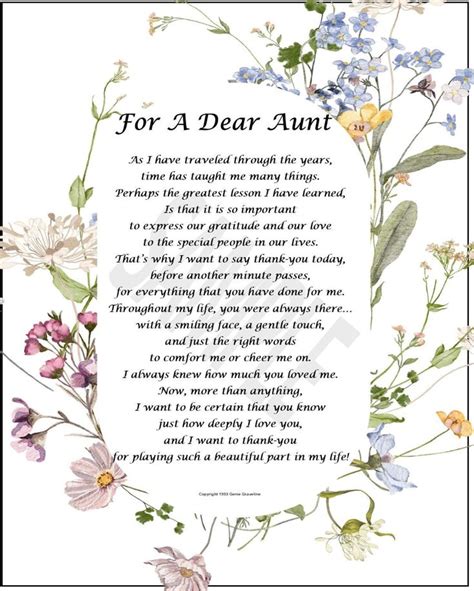 For A Dear Aunt
As I have traveled through the years,
time has taught me many things.
Perhaps the greatest lesson I have learned,
Is that it is so important
to express our gratitude and our love
to the special people in our lives.
That's why I want to say thank-you today,
before another minute passes,
for everything that you have done for me.
Throughout my life, you were always there...
with a smiling face, a gentle touch,
and just the right words
to comfort me or cheer me on.
I always knew how much you loved me.
Now, more than anything,
I want to be certain that you know
just how deeply I love you,
and I want to thank-you
for playing such a beautiful part in my life!
Copyright 1993 Genie Graveline